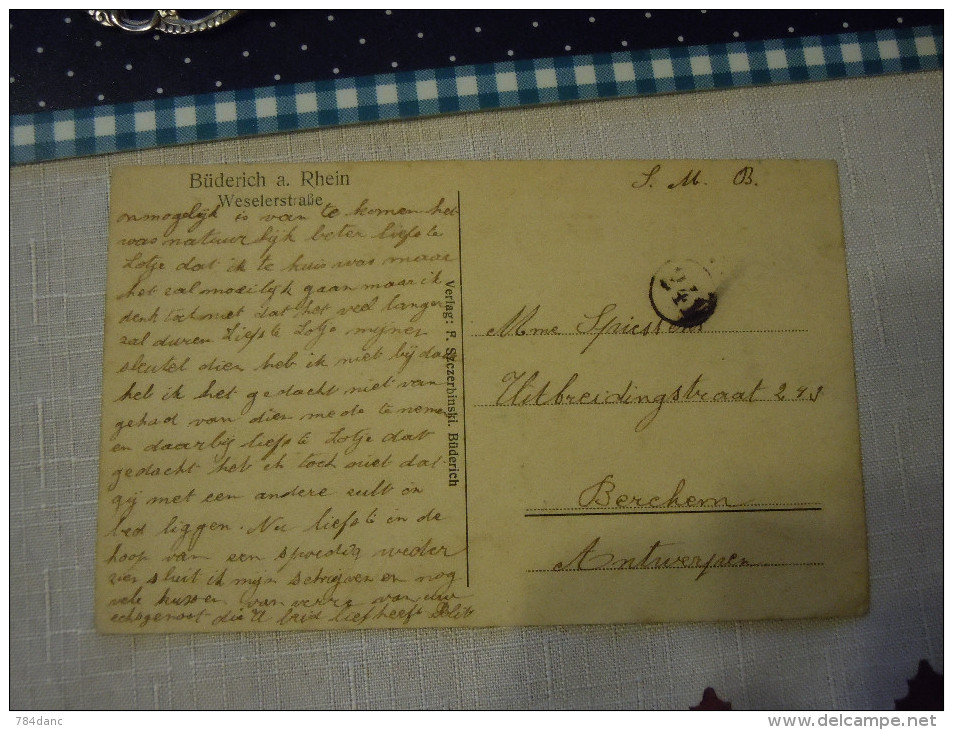 Büderich a. Rhein
Weselerstraße
onmogelijk is van te komen het
was natuurlijk beter liefste
Lotje dat ik te huis was maar
het zal moeilijk gaan maar ik
denk toch niet dat het veel langer
zal duren Liefste Lotje mijnen
sleutel dien heb ik niet bij da
heb ik het gedacht niet van
gehad van dien mede te nemen
en daarbij liefste Lotje dat
gedacht heb ik toch niet dat
gij met een andere zult in
bed liggen. Nu liefste in de
hoop van een spoedig weder
zien sluit ik mijn schrijven en nog
vele kussen van verre van uw
echtgenoot die U liefheeft
Verlag: F. Szczerbinski. Büderich
S. M. B.
Mme Spiessens
Uitbreidingstraat 243
Berchem
Antwerpen
784danc
www.delcampe.net